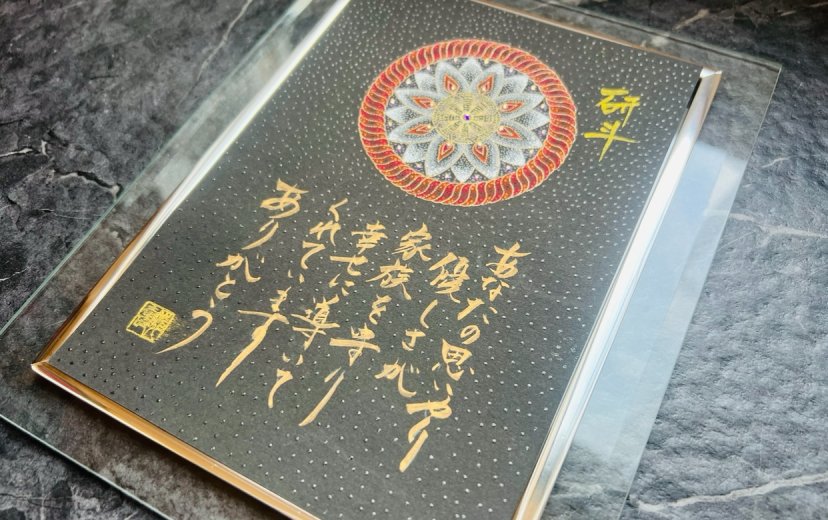 研斗
あなたの思いやり
優しさが
家族を守り
幸せに導いて
くれています
ありがとう